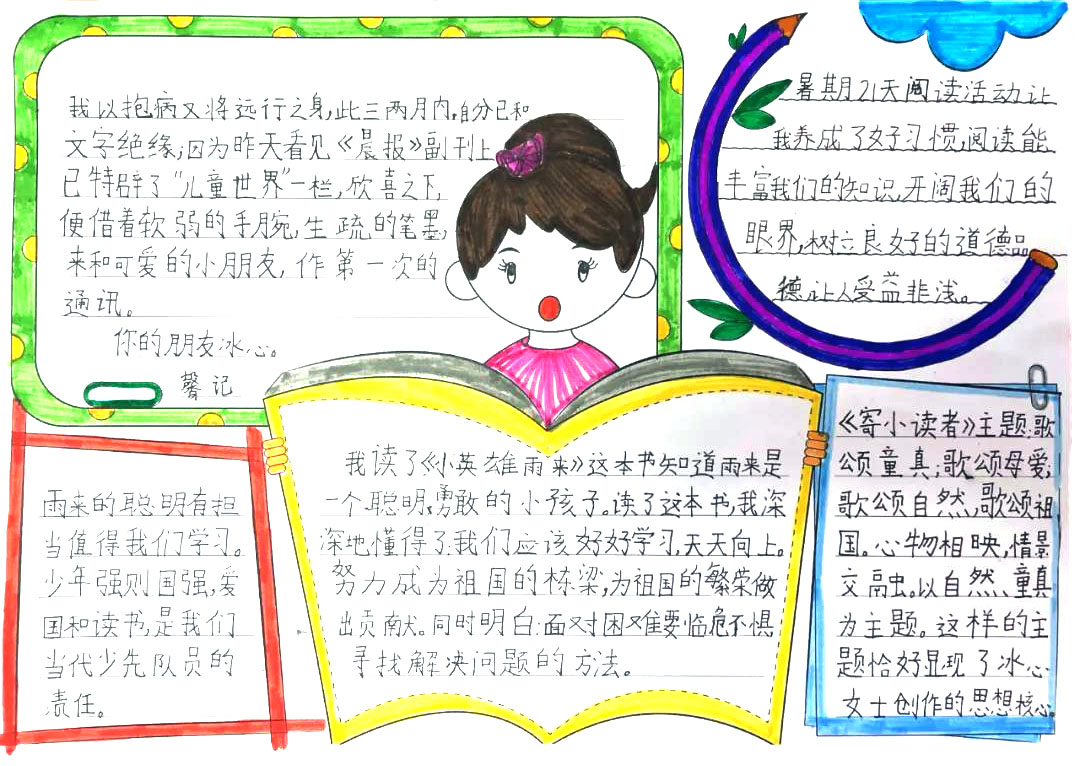 我以抱病又将远行之身，此三两月内，自分已和
文字绝缘；因为昨天看见《晨报》副刊上
已特辟了“儿童世界”一栏，欣喜之下，
便借着软弱的手腕，生疏的笔墨，
来和可爱的小朋友，作第一次的
通讯。
你的朋友冰心。
馨记
暑期21天阅读活动让
我养成了好习惯，阅读能
丰富我们的知识，开阔我们的
眼界，树立良好的道德品
德，让人受益非浅。
雨来的聪明有担
当值得我们学习。
少年强则国强，爱
国和读书，是我们
当代少先队员的
责任。
我读了《小英雄雨来》这本书知道雨来是
一个聪明，勇敢的小孩子。读了这本书，我深
深地懂得了：我们应该好好学习，天天向上。
努力成为祖国的栋梁，为祖国的繁荣做
出贡献。同时明白：面对困难要临危不惧
寻找解决问题的方法。
《寄小读者》主题：歌
颂童真；歌颂母爱；
歌颂自然，歌颂祖
国。心物相映，情景
交融。以自然、童真
为主题。这样的主
题恰好显现了冰心
女士创作的思想核心。